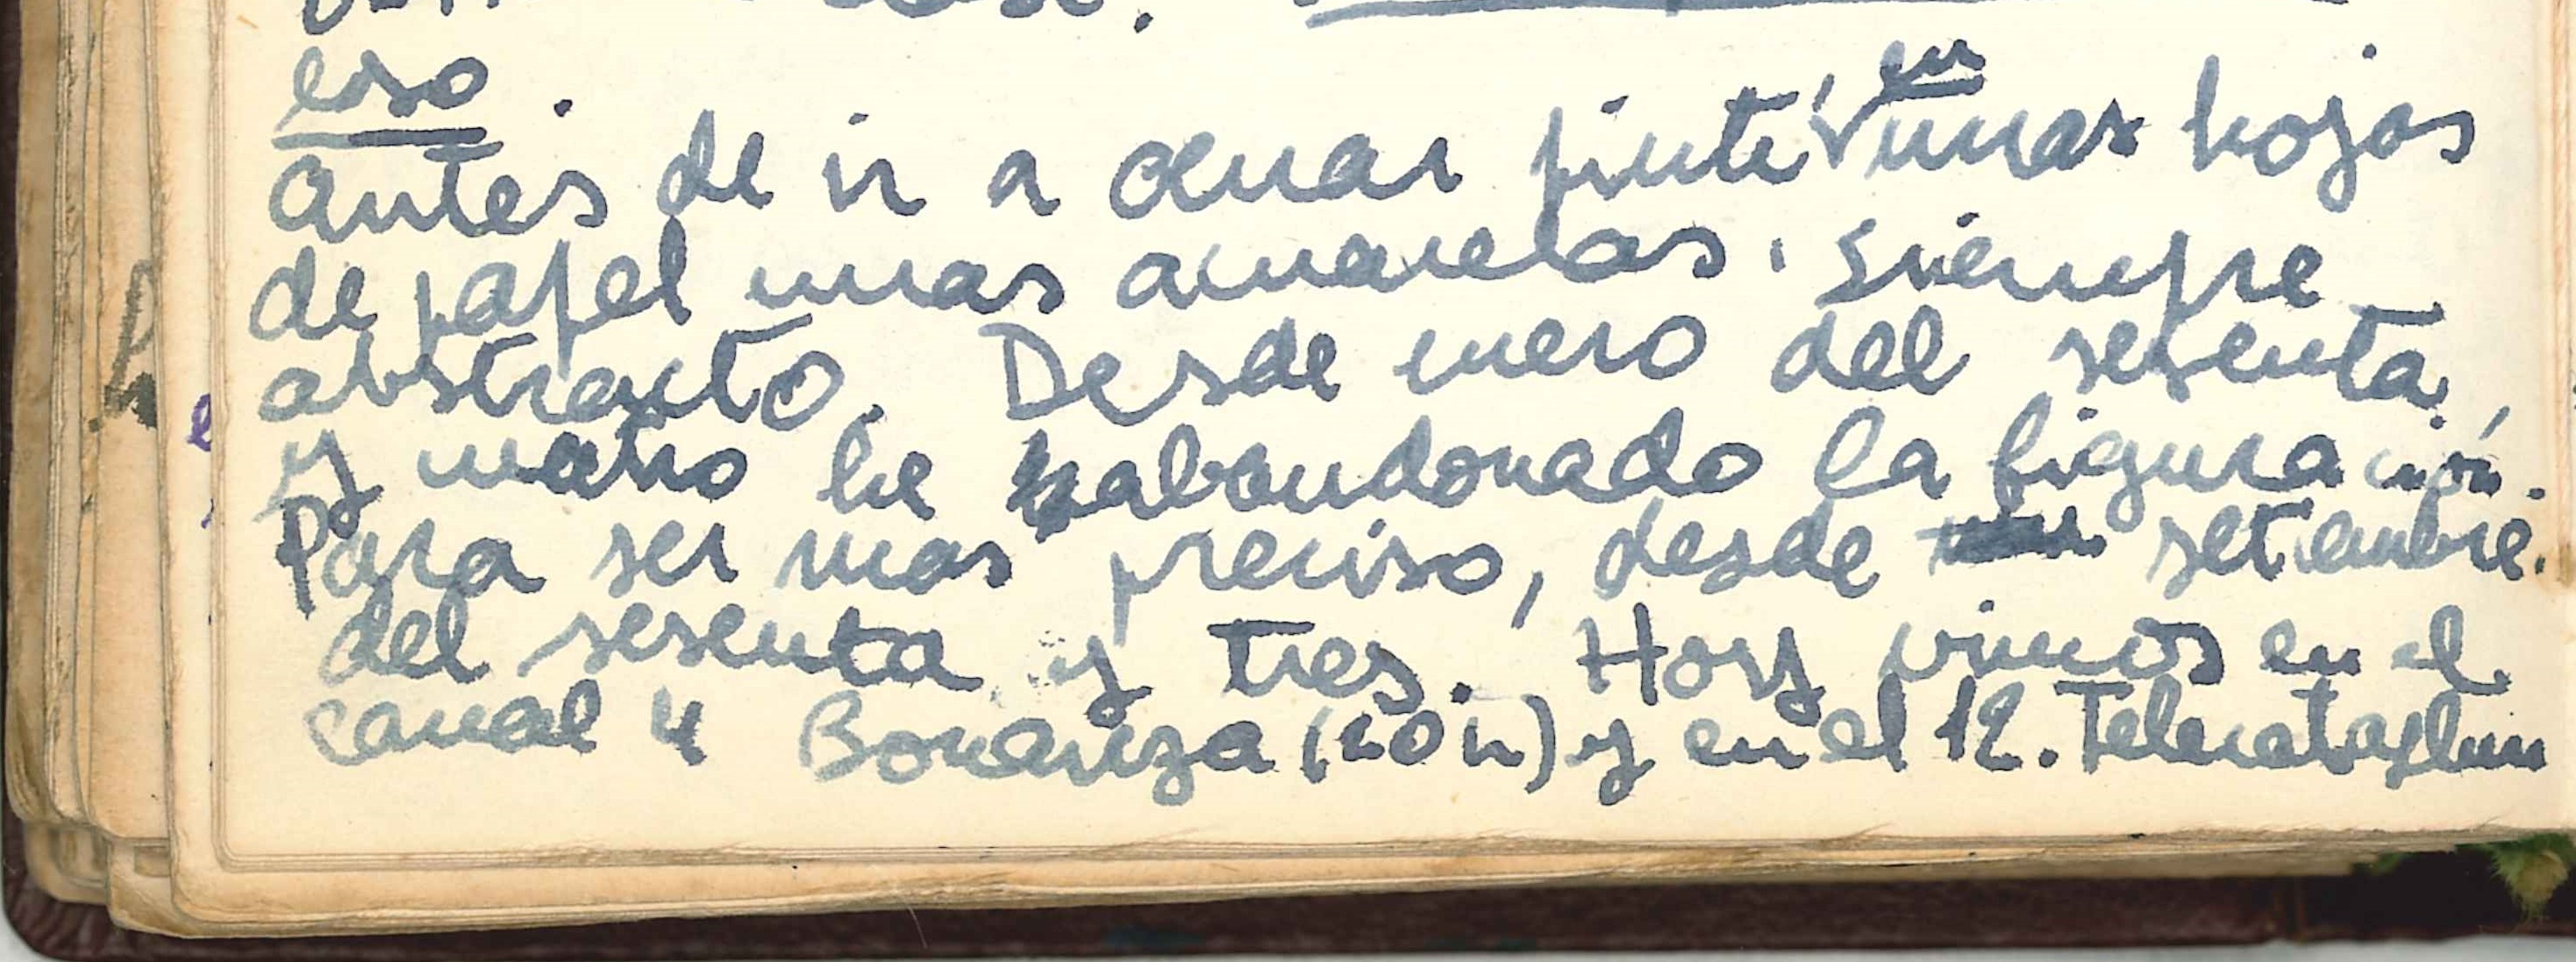 eso.
antes de ir a cenar pinté en unas hojas
de papel unas acuarelas. siempre
abstracto. Desde enero del sesenta
y cuatro he abandonado la figuración.
Para ser mas preciso, desde setiembre.
del sesenta y tres. Hoy vimos en el
canal 4 Bonanza (20 h) y en el 12. Telecataplum